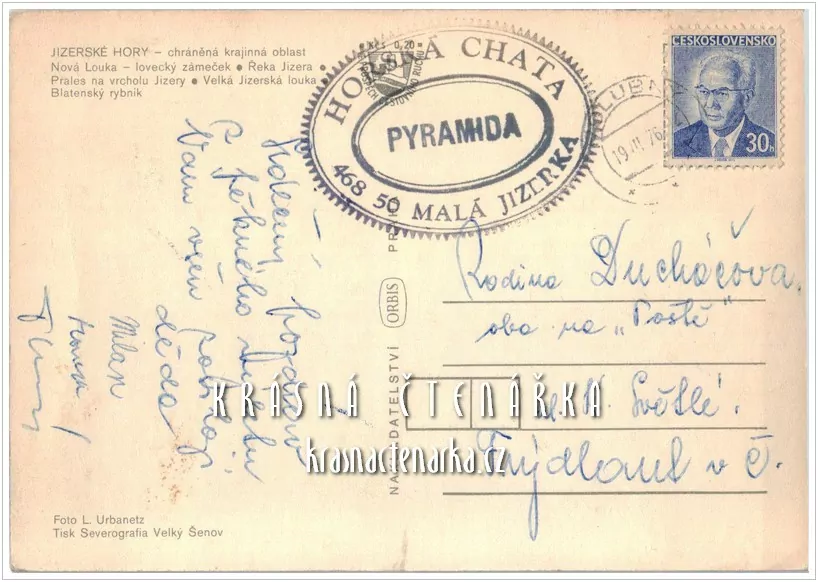 JIZERSKÉ HORY – chráněná krajinná oblast
Nová Louka – lovecký zámeček ● Řeka Jizera
Prales na vrcholu Jizery ● Velká Jizerská louka
Blatenský rybník
Kčs 0,20
HORSKÁ CHATA
PYRAMIDA
468 50 MALÁ JIZERKA
19.
76
ČESKOSLOVENSKO
30h
Srdečný pozdrav
z pěkného výletu
Vám všem posílají
děda
Milan
NAKLADATELSTVÍ ORBIS
Rodina Ducháčova
oba na „Poště"
u. N. Světlé.
Frýdlant v Č.
KRÁSNÁ ČTENÁŘKA
krasnactenarka.cz
Foto L. Urbanetz
Tisk Severografia Velký Šenov